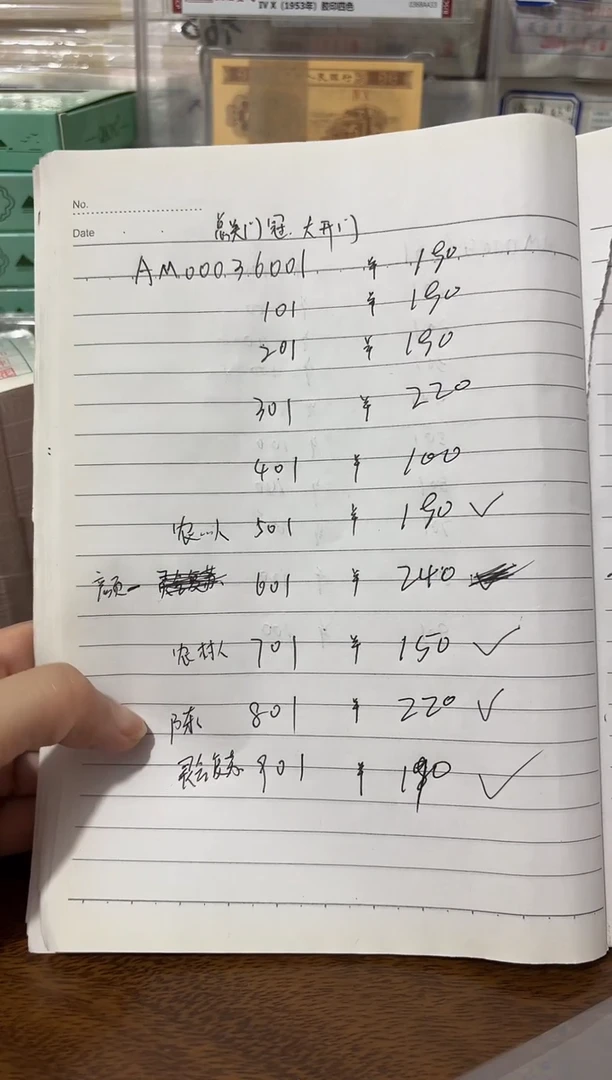 IV X（1953年）胶印四色
No.
Date
总关门冠.大开门
AM00036001 ¥ 190
101 ¥ 190
201 ¥ 190
301 ¥ 220
401 ¥ 100
农...人 501 ¥ 190 ✓
601 ¥ 240
农村人 701 ¥ 150 ✓
陈 801 ¥ 220 ✓
901 ¥ 190 ✓